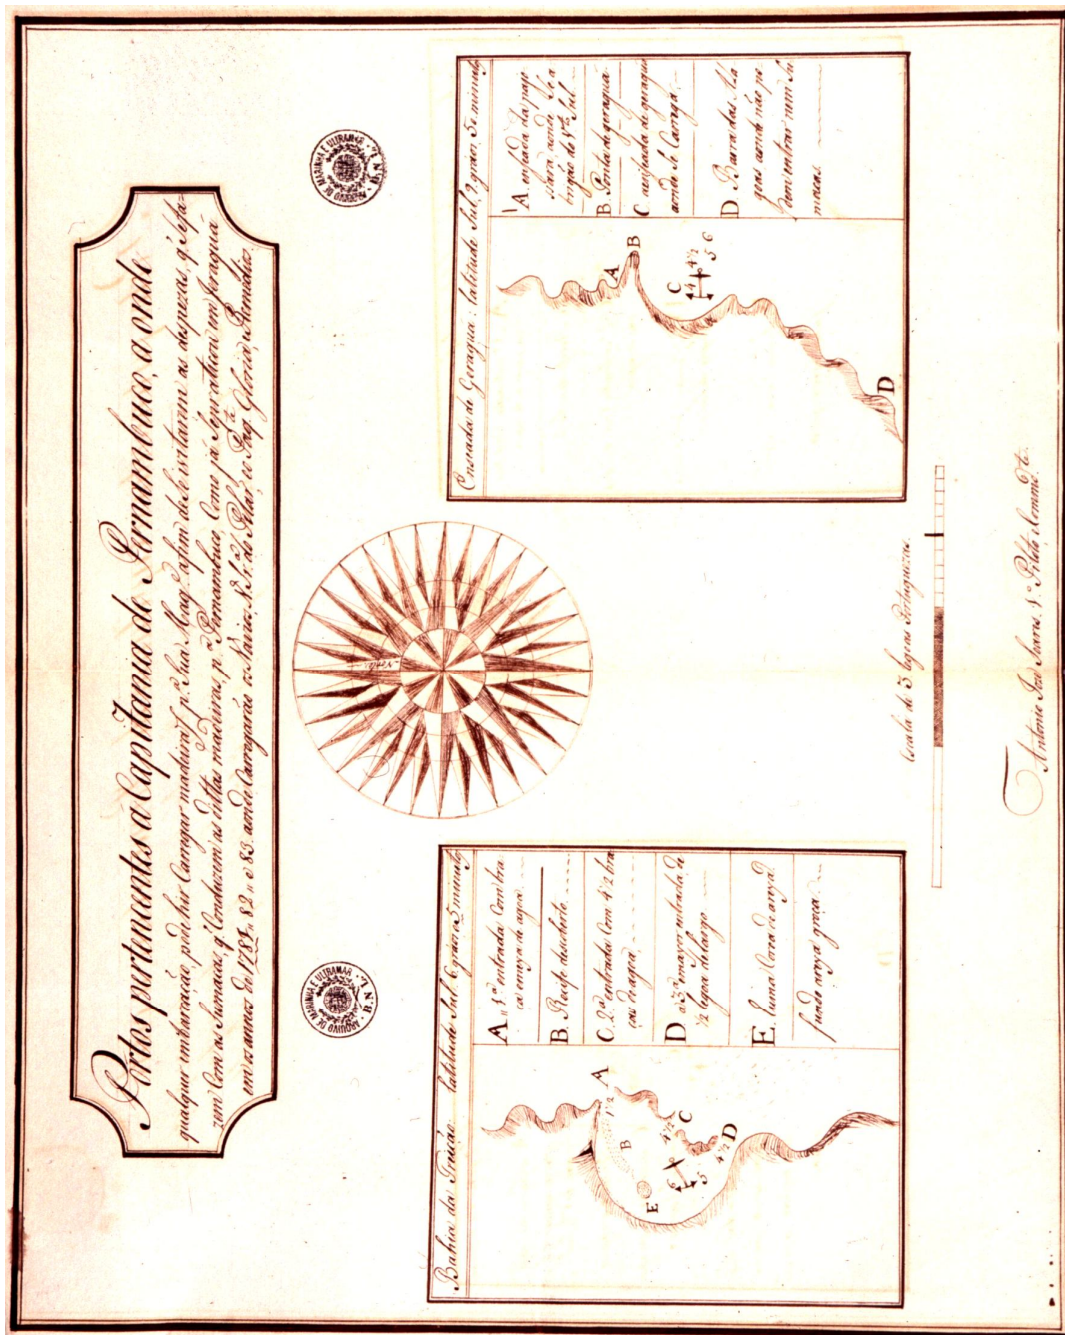 Portos pertencentes a Capitania de Pernambuco, a onde
qualquer embarcação pode hir Carregar madeiras pª. Sua Magᵉ. afim de se evitarem as despezas, q̃ se fa-
zem Com as Sumacas, q̃ Conduzem as dittas madeiras, pª. Pernambuco, Como já Se praticou em Jeraguá
em os annos de 1781,, 82,, e 83, aonde Carregarão os Navios N. Srª. do Pilar, e Glória, Remedios
ARQUIVO DE MARINHA E ULTRAMAR
B. N. L.
ARQUIVO DE MARINHA E ULTRAMAR
B. N. L.
Bahia da Treição latitude Sul 6 graos 5 minutos
A 1ª entrada Com bra
ça e meya de agoa
B. Recife descoberto
C. 2ª entrada Com 4½ bra
ças de agoa
D a 3ª e mayor entrada de
½ legoa de largo
E. huma Coroa de area
fundo area groça
A
1½
B
C
4½
D
4½
E
6
5
Norte
Enseada de Geragua: latitude Sul, 9 graos 5 minutos
A. enseada da paju
sara aonde Se a
brigão do Vᵗᵒ. Sul
B. Ponta de geragua
C. enseada de geragua
aonde Se Carrega
D. Barra das Ala
goas aonde não po
dem entrar nem Su
macas.
A
B
C
4
4½
5
6
D
Escala de 3 legoas Portuguezas.
Antonio Joze 1º. Piloto